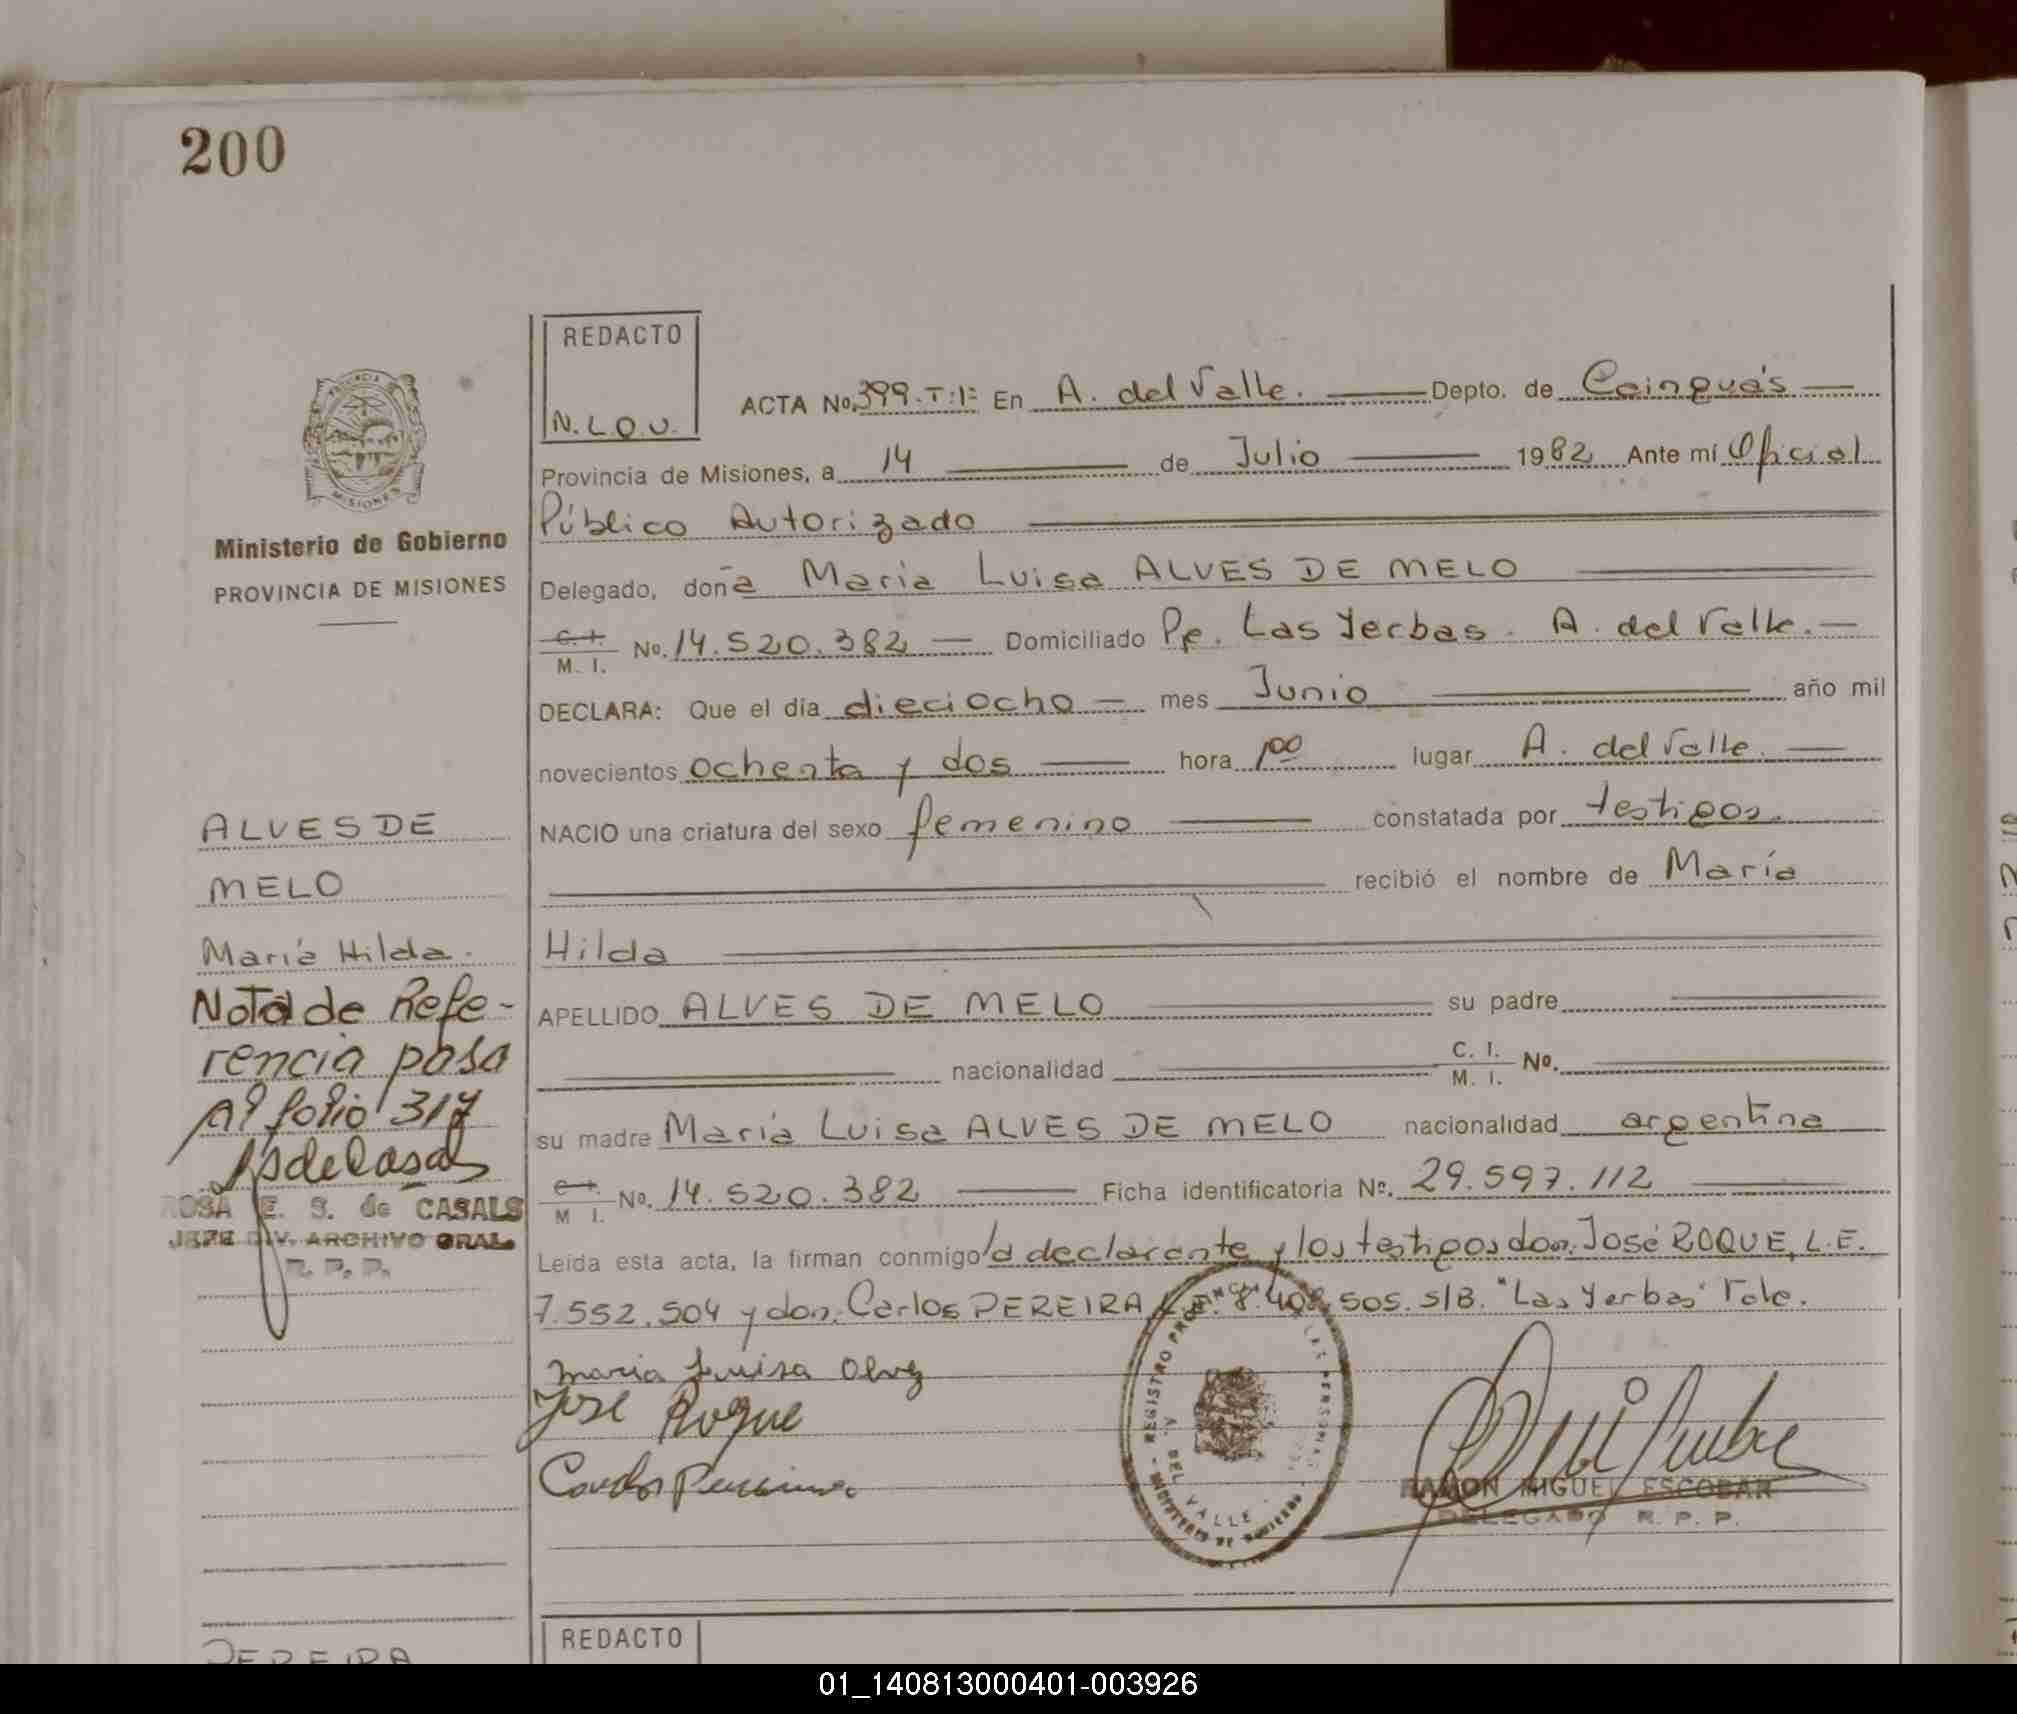 200
REDACTO
N.L.O.U.
ACTA No. 399.T:1º En A. del Valle. Depto. de Cainguás
Provincia de Misiones, a 14 de Julio 1982 Ante mí Oficial
Público Autorizado
Delegado, doña María Luisa ALVES DE MELO
C. I.
M. I. No. 14.520.382 Domiciliado Pje. Las Yerbas. A. del Valle.
DECLARA: Que el día dieciocho mes Junio año mil
novecientos ochenta y dos hora 1,00 lugar A. del Valle.
NACIO una criatura del sexo femenino constatada por testigos.
recibió el nombre de María
Hilda
APELLIDO ALVES DE MELO su padre
nacionalidad C. I.
M. I. No.
su madre María Luisa ALVES DE MELO nacionalidad argentina
C. I.
M. I. No. 14.520.382 Ficha identificatoria No. 29.597.112
Leída esta acta, la firman conmigo la declarante y los testigos don. José ROQUE, L.E.
7.552.504 y don. Carlos PEREIRA L.E. 8.408.505. s/B. "Las Yerbas"
maria Luisa Alves
José Roque
Carlos Pereira
REGISTRO PROVINCIAL DE LAS PERSONAS
A. DEL VALLE
MINISTERIO DE GOBIERNO
RAMON MIGUEL ESCOBAR
DELEGADO R. P. P.
PROVINCIA DE
MISIONES
Ministerio de Gobierno
PROVINCIA DE MISIONES
ALVES DE
MELO
María Hilda.
Nota de Refe-
rencia pasa
al folio 317
ROSA E. S. de CASALS
JEFE DIV. ARCHIVO GRAL.
R. P. P.
PEREIRA
REDACTO
01_140813000401-003926